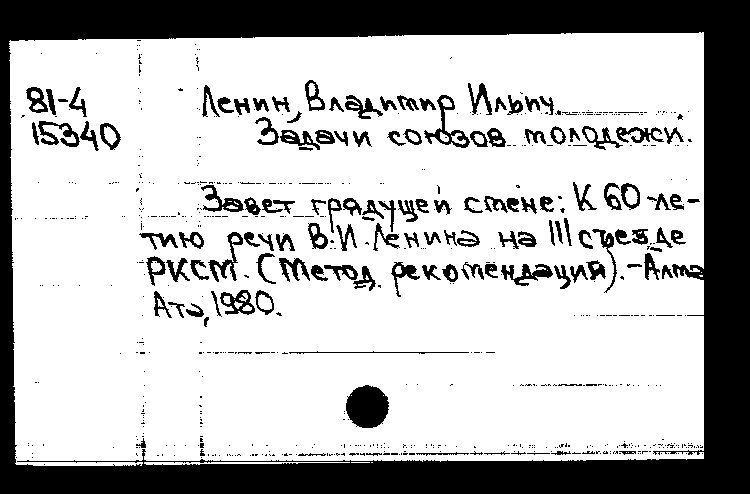 81-4
15340
Ленин, Владимир Ильич.
Задачи союзов молодежи.
Завет грядущей смене: К 60-ле-
тию речи В.И.Ленина на III съезде
РКСМ. (Метод. рекомендации).-Алма
Ата, 1980.